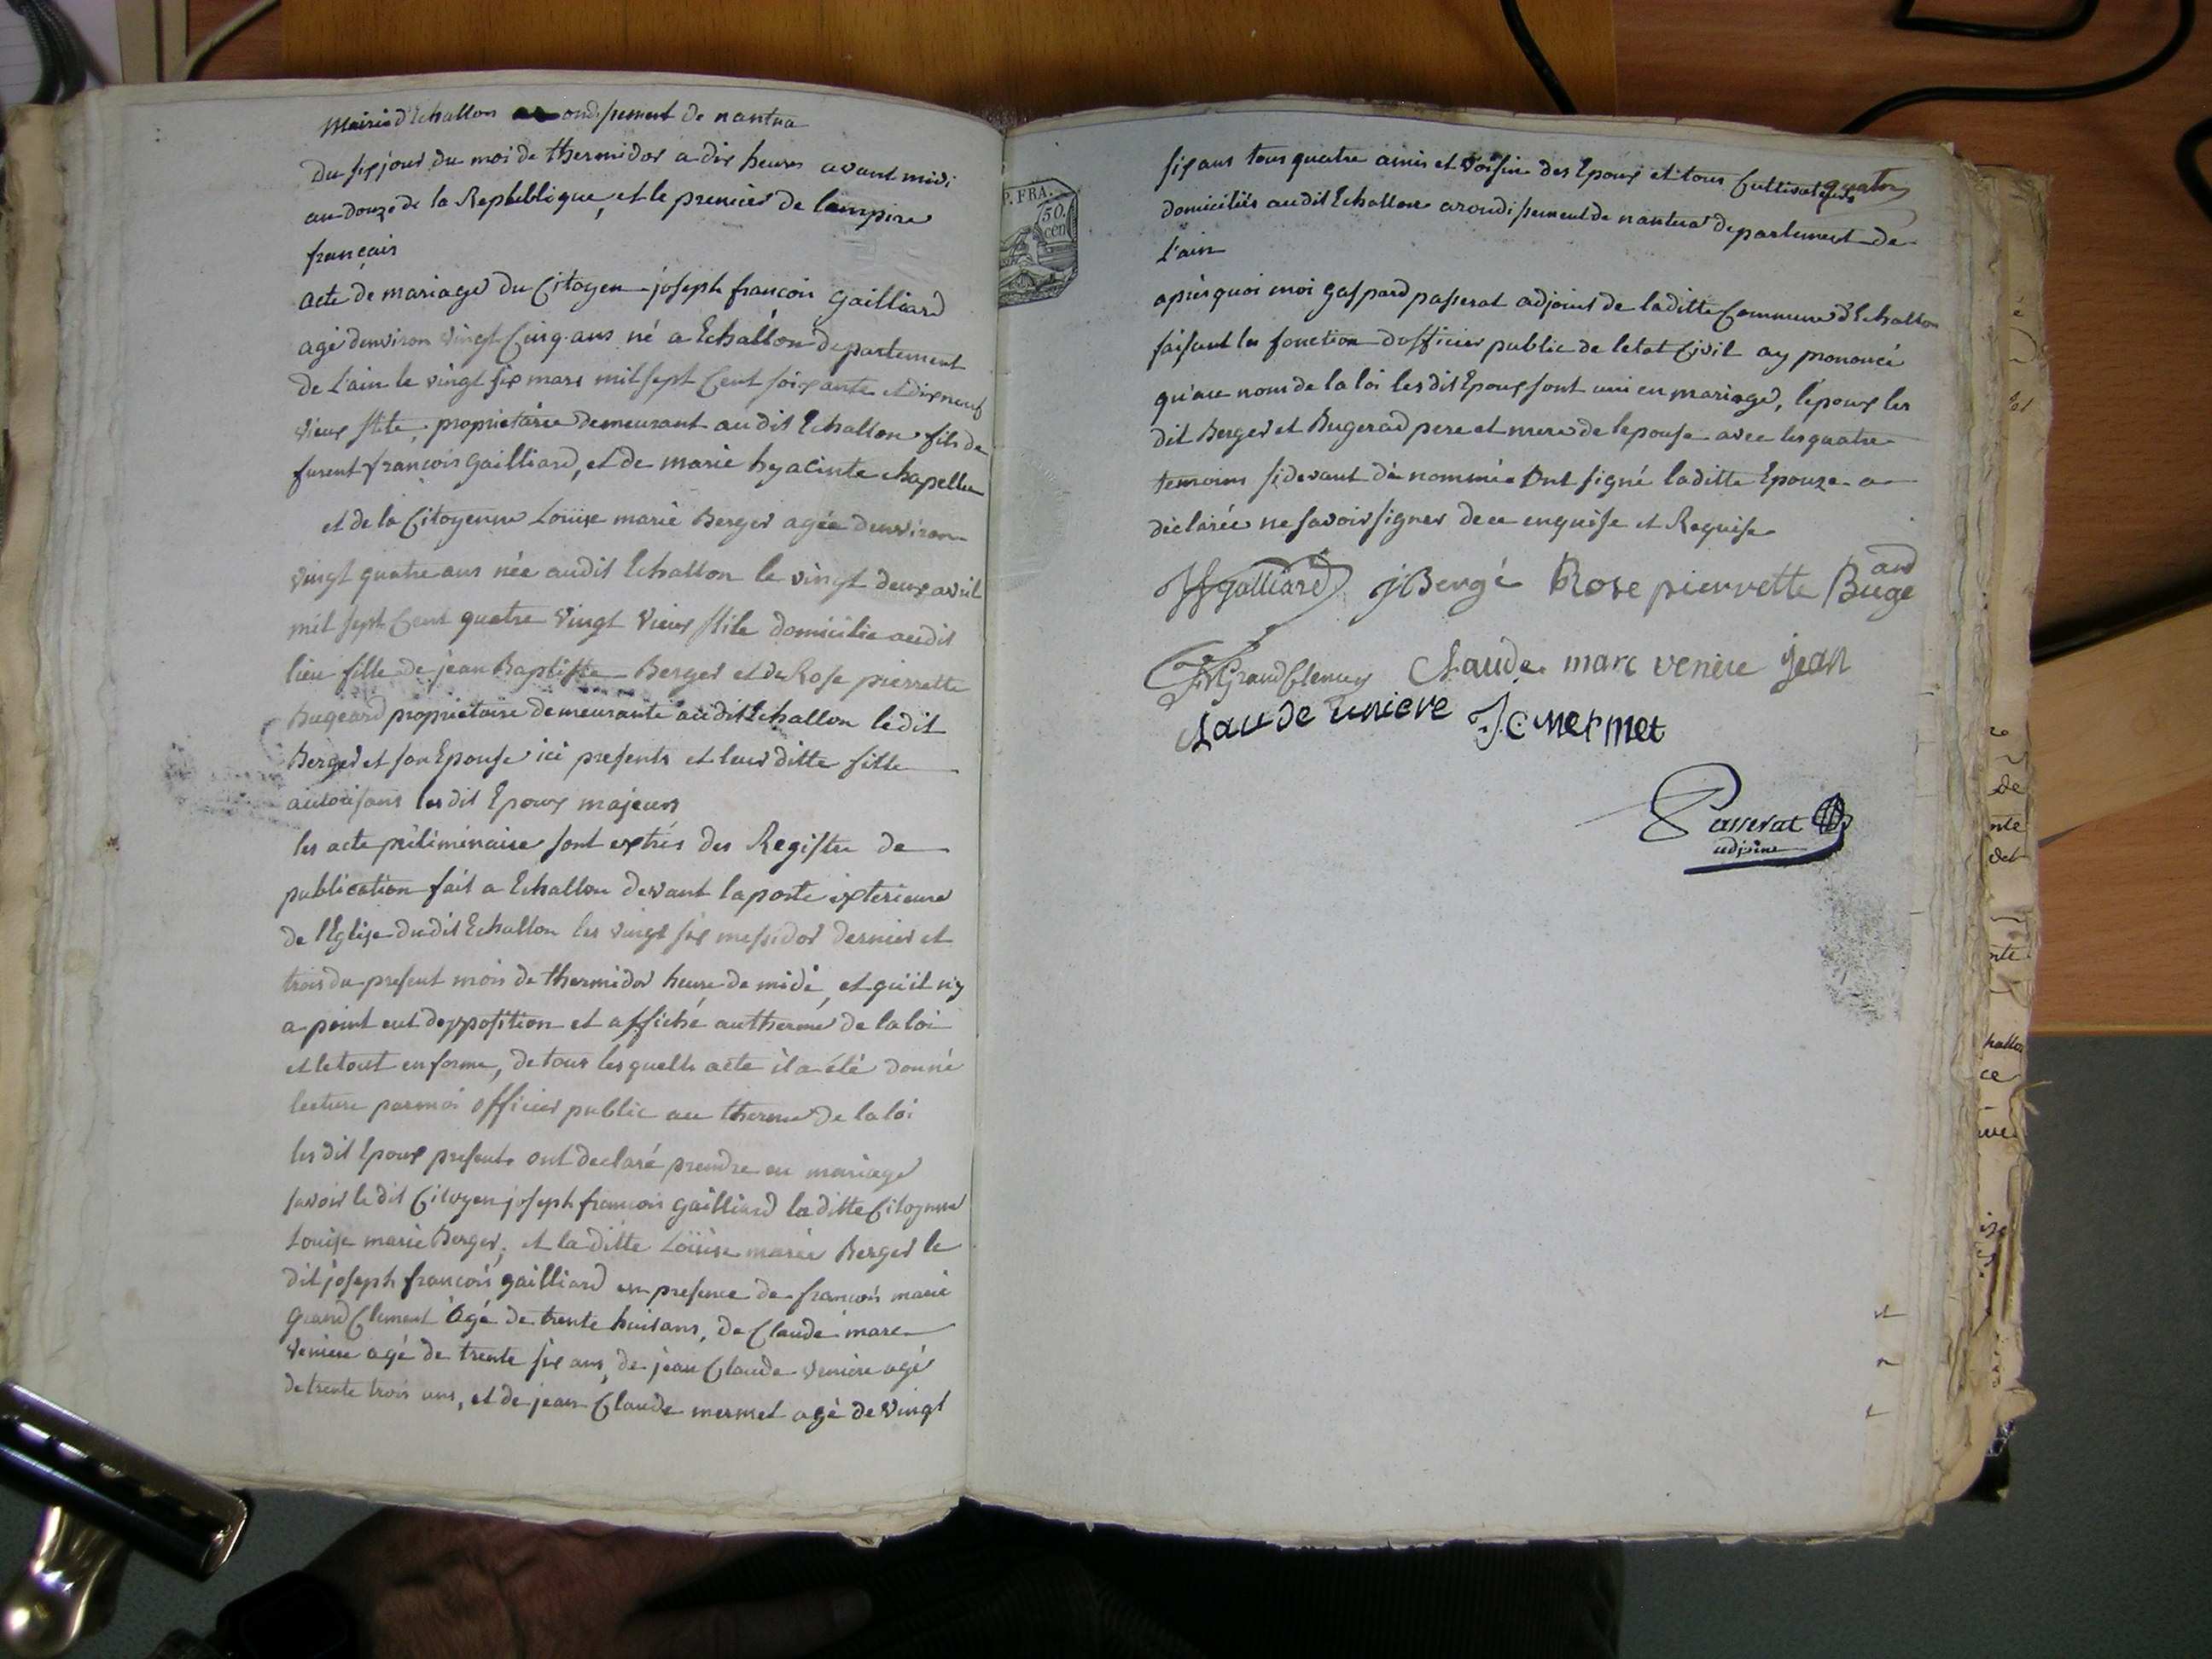 Mairie d'Echallon arondissement de nantua
Du six jour du moi de thermidor a dix heures avant midi
an douze de la Repbeblique, et le premier de l'empire
français
acte de mariage du Citoyen joseph françois gailliard
agé denviron vingt Cinq ans né a Echallon departement
de L'ain le vingt six mars mil sept Cent soixante et dix neuf
vieux stile, proprietaire demeurant au dit Echallon fils de
furent françois gailliard, et de marie hyacinte chapellu
et de la Citoyenne Louise marie Berger agée denviron
vingt quatre ans née audit Echallon le vingt deux avril
mil sept Cent quatre vingt vieux stile domicilié audit
lieu fille de jean Baptiste Berger et de Rose pierrette
Bugeard proprietaire demeurante audit Echallon le dit
Berger et son Epouse ici presents et leur ditte fille
autorisans les dit Epoux majeurs
les acte préliminaire sont extrés des Registre de
publication fait a Echallon devant la porte exterieure
de l'Eglise du dit Echallon les vingt six messidor dernier et
trois du present mois de thermidor heure de midi, et qu'il n'y
a point eut dopposition et affiché au therme de la loi
et le tout en forme, de tous les quells acte il a été donné
lecture par moi officier public au therme de la loi
les dit Epoux presents ont declaré prendre en mariage
savoir le dit Citoyen joseph françois gailliard la ditte Citoyenne
Louise marie Berger, et la ditte Loüise marie Berger le
dit joseph françois gailliard en presence de françois marie
grand Clement âgé de trente huit ans, de Claude marc
veniere agé de trente six ans, de jean Claude veniere agé
de trente trois ans, et de jean Claude mermet agé de vingt
P. FRA.
50.
cen
quatre
six ans tous quatre amis et voisin des Epoux et tous Cultivateurs
domiciliés audit Echallon arondissement de nantua departement de
L'ain
après quoi moi gaspard passerat adjoint de laditte Commune d'Echallon
faisant les fonction dofficier public de letat Civil ay prononcé
qu'au nom de la loi les dit Epoux sont uni en mariage, l'époux les
dit Berger et Bugerad pere et mere de lepouse avec les quatre
temoins sidevant dénommée ont signé laditte Epouze a
déclarée ne savoir signer de ce enquise et Requise
JF galliard jBergé Rose pierrette Buge
ard
FM GrandClement Claude marc venire jean
Claude veniere JC mermet
Passerat
adjoint